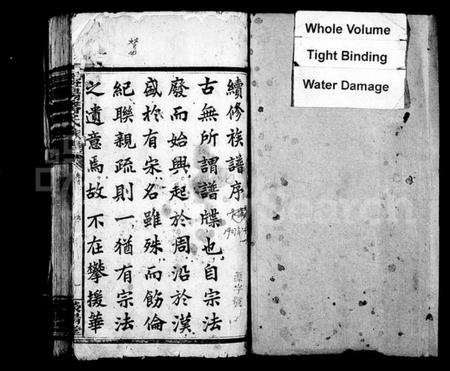 Whole Volume
Tight Binding
Water Damage
續修族譜序
古無所謂譜牒也自宗法
廢而始興起於周沿於漢
盛於有宋名雖殊而飭倫
紀聯親疏則一猶有宗法
之遺意焉故不在攀援華